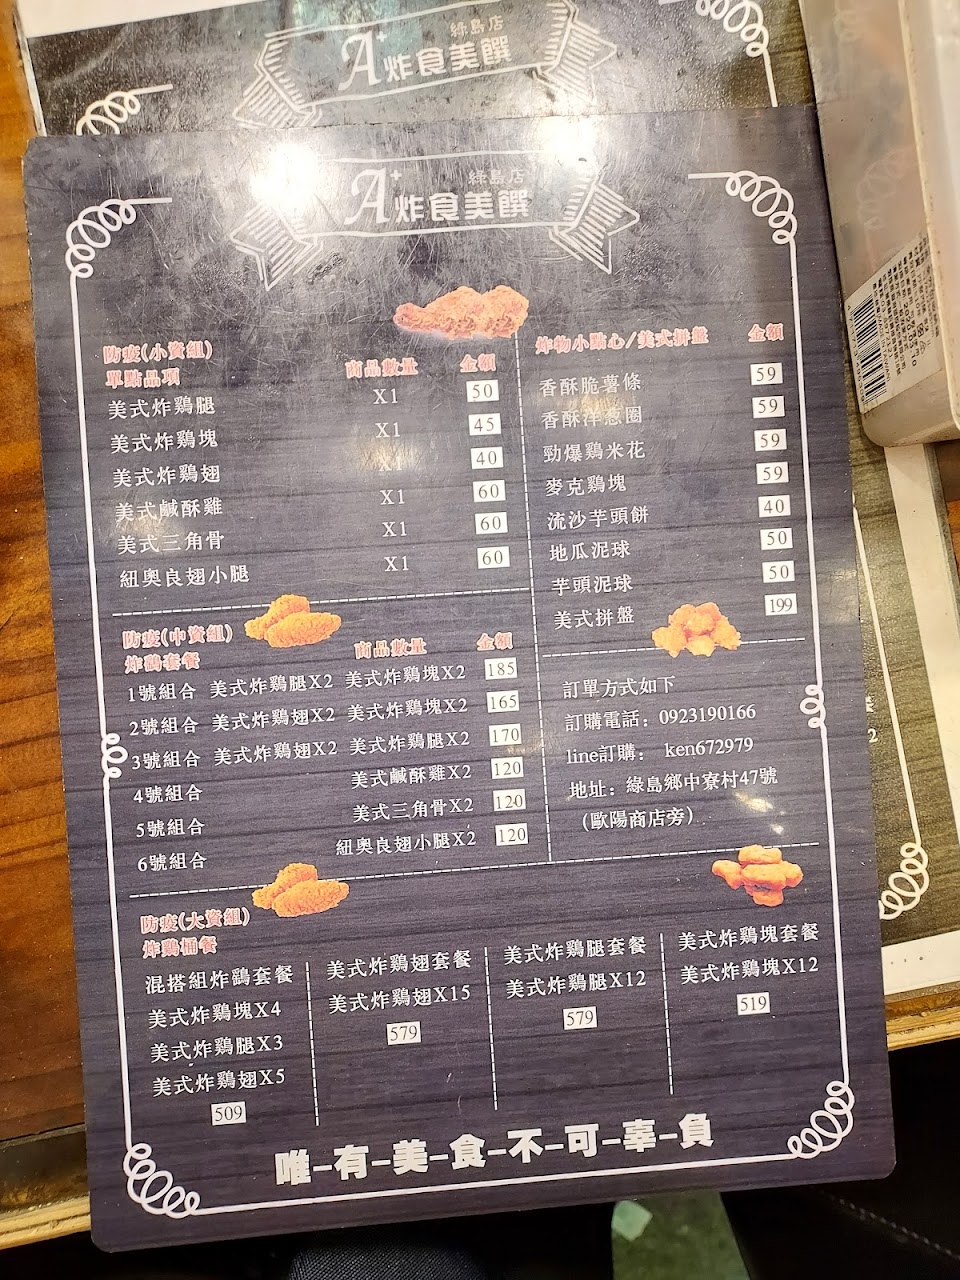 綠島店
A+炸食美饌
綠島店
A+炸食美饌
防疫(小資組)
單點品項 商品數量 金額
美式炸鷄腿 X1 50
美式炸鷄塊 X1 45
美式炸鷄翅 X1 40
美式鹹酥雞 X1 60
美式三角骨 X1 60
紐奧良翅小腿 X1 60
炸物小點心/美式拼盤 金額
香酥脆薯條 59
香酥洋蔥圈 59
勁爆鷄米花 59
麥克鷄塊 59
流沙芋頭餅 40
地瓜泥球 50
芋頭泥球 50
美式拼盤 199
防疫(中資組)
炸鷄套餐 商品數量 金額
1號組合 美式炸鷄腿X2 美式炸鷄塊X2 185
2號組合 美式炸鷄翅X2 美式炸鷄塊X2 165
3號組合 美式炸鷄翅X2 美式炸鷄腿X2 170
4號組合 美式鹹酥雞X2 120
5號組合 美式三角骨X2 120
6號組合 紐奧良翅小腿X2 120
訂單方式如下
訂購電話：0923190166
line訂購： ken672979
地址：綠島鄉中寮村47號
（歐陽商店旁）
防疫(大資組)
炸鷄桶餐
混搭組炸鷄套餐
美式炸鷄塊X4
美式炸鷄腿X3
美式炸鷄翅X5
509
美式炸鷄翅套餐
美式炸鷄翅X15
579
美式炸鷄腿套餐
美式炸鷄腿X12
579
美式炸鷄塊套餐
美式炸鷄塊X12
519
唯-有-美-食-不-可-辜-負